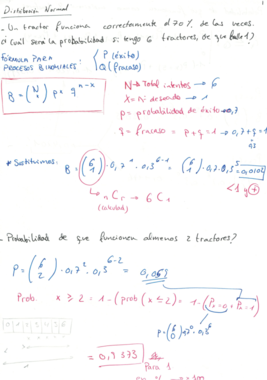 Distribución Normal
- Un tractor funciona correctamente el 70% de las veces.
¿Cuál será la probabilidad si tengo 6 tractores, de que falle 1?
FÓRMULA PARA
PROCESOS BINOMIALES:
P (éxito)
Q (fracaso)
B = (N x) p^x q^n-x
N → Total intentos → 6
X = Nº deseado → 1
p = probabilidad de éxito → 0,7
q = Fracaso = p+q=1 → 0,7+q=1
* Sustituimos:
B = (6 1) · 0,7^1 · 0,3^6-1 = (6 1) · 0,7 · 0,3^5 = 0,0102
<1
nCr → 6C1
(calculad)
- Probabilidad de que funcionen al menos 2 tractores?
P = (6 2) · 0,7^2 · 0,3^6-2 =
Prob. x ≥ 2 = 1 - (prob (x ≤ 2) = 1 - (Px=0 + Px=1)
p = (6 0) 0,7^0 · 0,3^6
Para 1